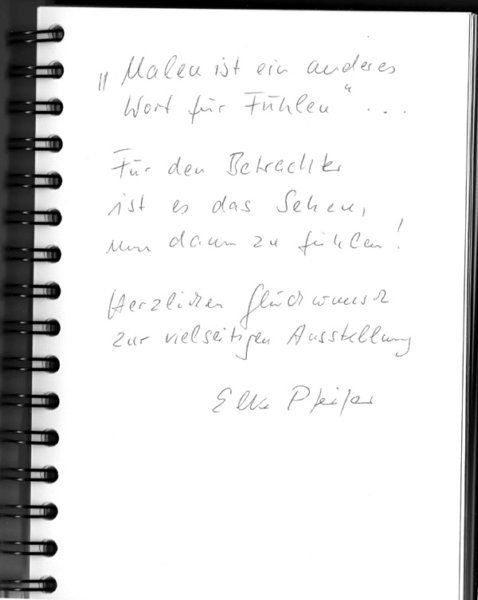 „Malen ist ein anderes
Wort für Fühlen“ ...
Für den Betrachter
ist es das Sehen,
um dann zu fühlen!
Herzlichen Glückwunsch
zur vielseitigen Ausstellung
Elke Pfeifer